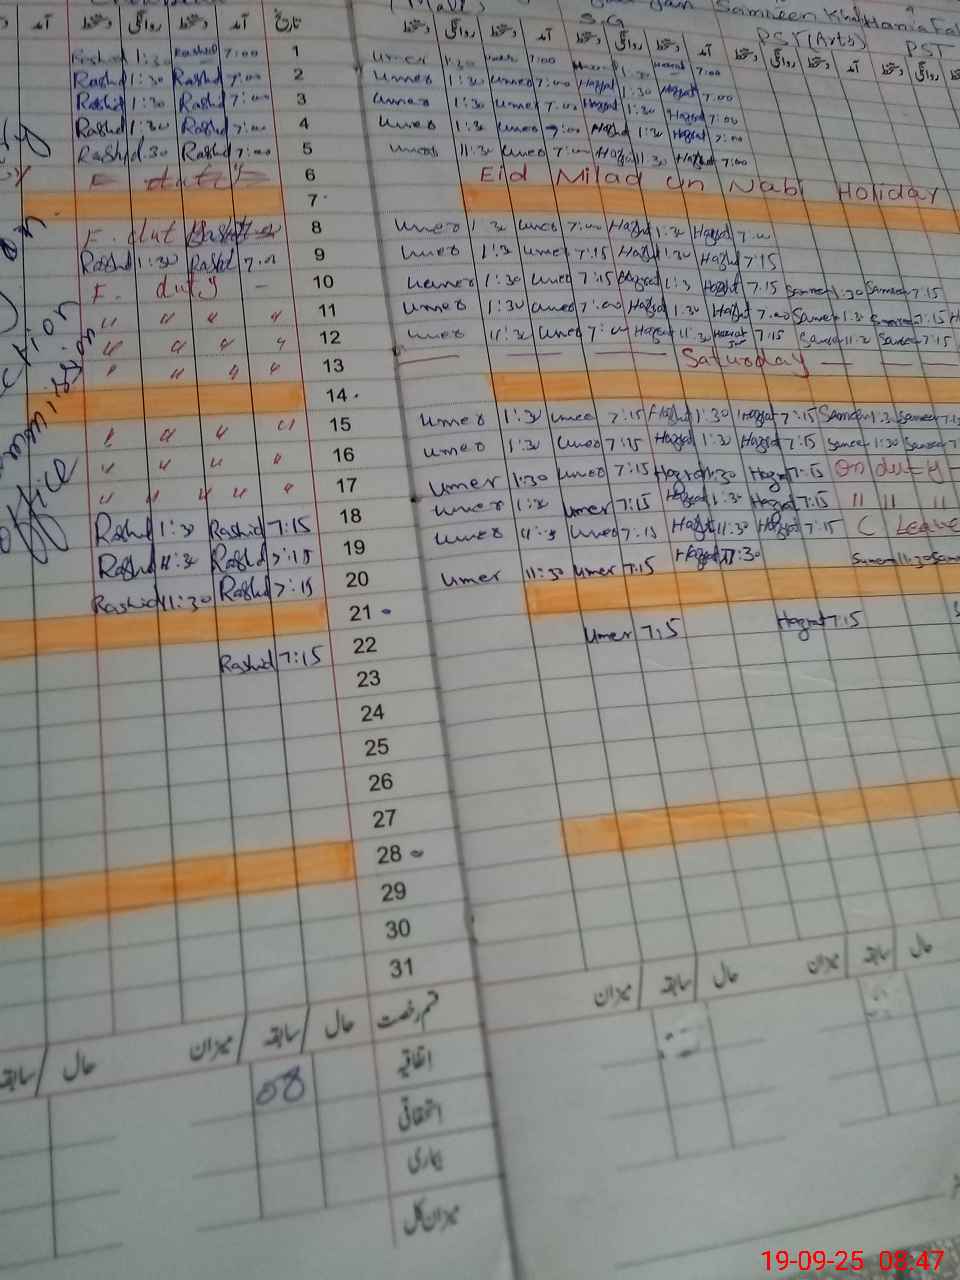 (Mali) Samreen Khan Hania
S.G PST (Arts) PST
دستخط روانگی دستخط آمد تاریخ دستخط روانگی دستخط آمد دستخط روانگی دستخط آمد
Rashid 1:30 Rashid 7:00 1 Umer 1:30 Umer 7:00 Hazrat 1:30 Hazrat 7:00
Rashid 1:30 Rashid 7:00 2 Umer 1:30 Umer 7:00 Hazrat 1:30 Hazrat 7:00
Rashid 1:30 Rashid 7:00 3 Umer 1:30 Umer 7:00 Hazrat 1:30 Hazrat 7:00
Rashid 1:30 Rashid 7:00 4 Umer 1:30 Umer 7:00 Hazrat 1:30 Hazrat 7:00
Rashid 30 Rashid 7:00 5 Umer 11:30 Umer 7:00 Hazrat 11:30 Hazrat 7:00
E duty 6 Eid Milad un Nabi Holiday
7
E. dut 8 Umer 1:30 Umer 7:00 Hazrat 1:30 Hazrat 7:00
Rashid 1:30 Rashid 7:00 9 Umer 1:30 Umer 7:15 Hazrat 1:30 Hazrat 7:15
E. duty – 10 Umer 1:30 Umer 7:15 Hazrat 1:30 Hazrat 7:15 Sameen 1:30 Sameen 7:15
" " " " 11 Umer 1:30 Umer 7:00 Hazrat 1:30 Hazrat 7:00 Sameen 1:30 Sameen 7:15
" " " " 12 Umer 11:30 Umer 7:00 Hazrat 11:30 Hazrat 7:15 Sameen 11:30 Sameen 7:15
" " " " 13 Saturday
14
" " " " 15 Umer 1:30 Umer 7:15 Hazrat 1:30 Hazrat 7:15 Sameen 1:30 Sameen 7:15
" " " " 16 Umer 1:30 Umer 7:15 Hazrat 1:30 Hazrat 7:15 Sameen 1:30 Sameen 7:15
" " " " " 17 Umer 1:30 Umer 7:15 Hazrat 1:30 Hazrat 7:15 On duty
Rashid 1:30 Rashid 7:15 18 Umer 1:30 Umer 7:15 Hazrat 1:30 Hazrat 7:15 " " "
Rashid 11:30 Rashid 7:15 19 Umer 11:30 Umer 7:15 Hazrat 11:30 Hazrat 7:15 C Leave
Rashid 11:30 Rashid 7:15 20 Umer 11:30 Umer 7:15 Hazrat 11:30 Sameen 11:30
21
Rashid 7:15 22 Umer 7:15 Hazrat 7:15
23
24
25
26
27
28
29
30
31
قسم رخصت حال سابقہ میزان حال سابقہ
حال سابقہ میزان حال سابقہ میزان
اتفاقیہ 08
استحقاقی
بیماری
میزان کل
Office
19-09-25 08:47